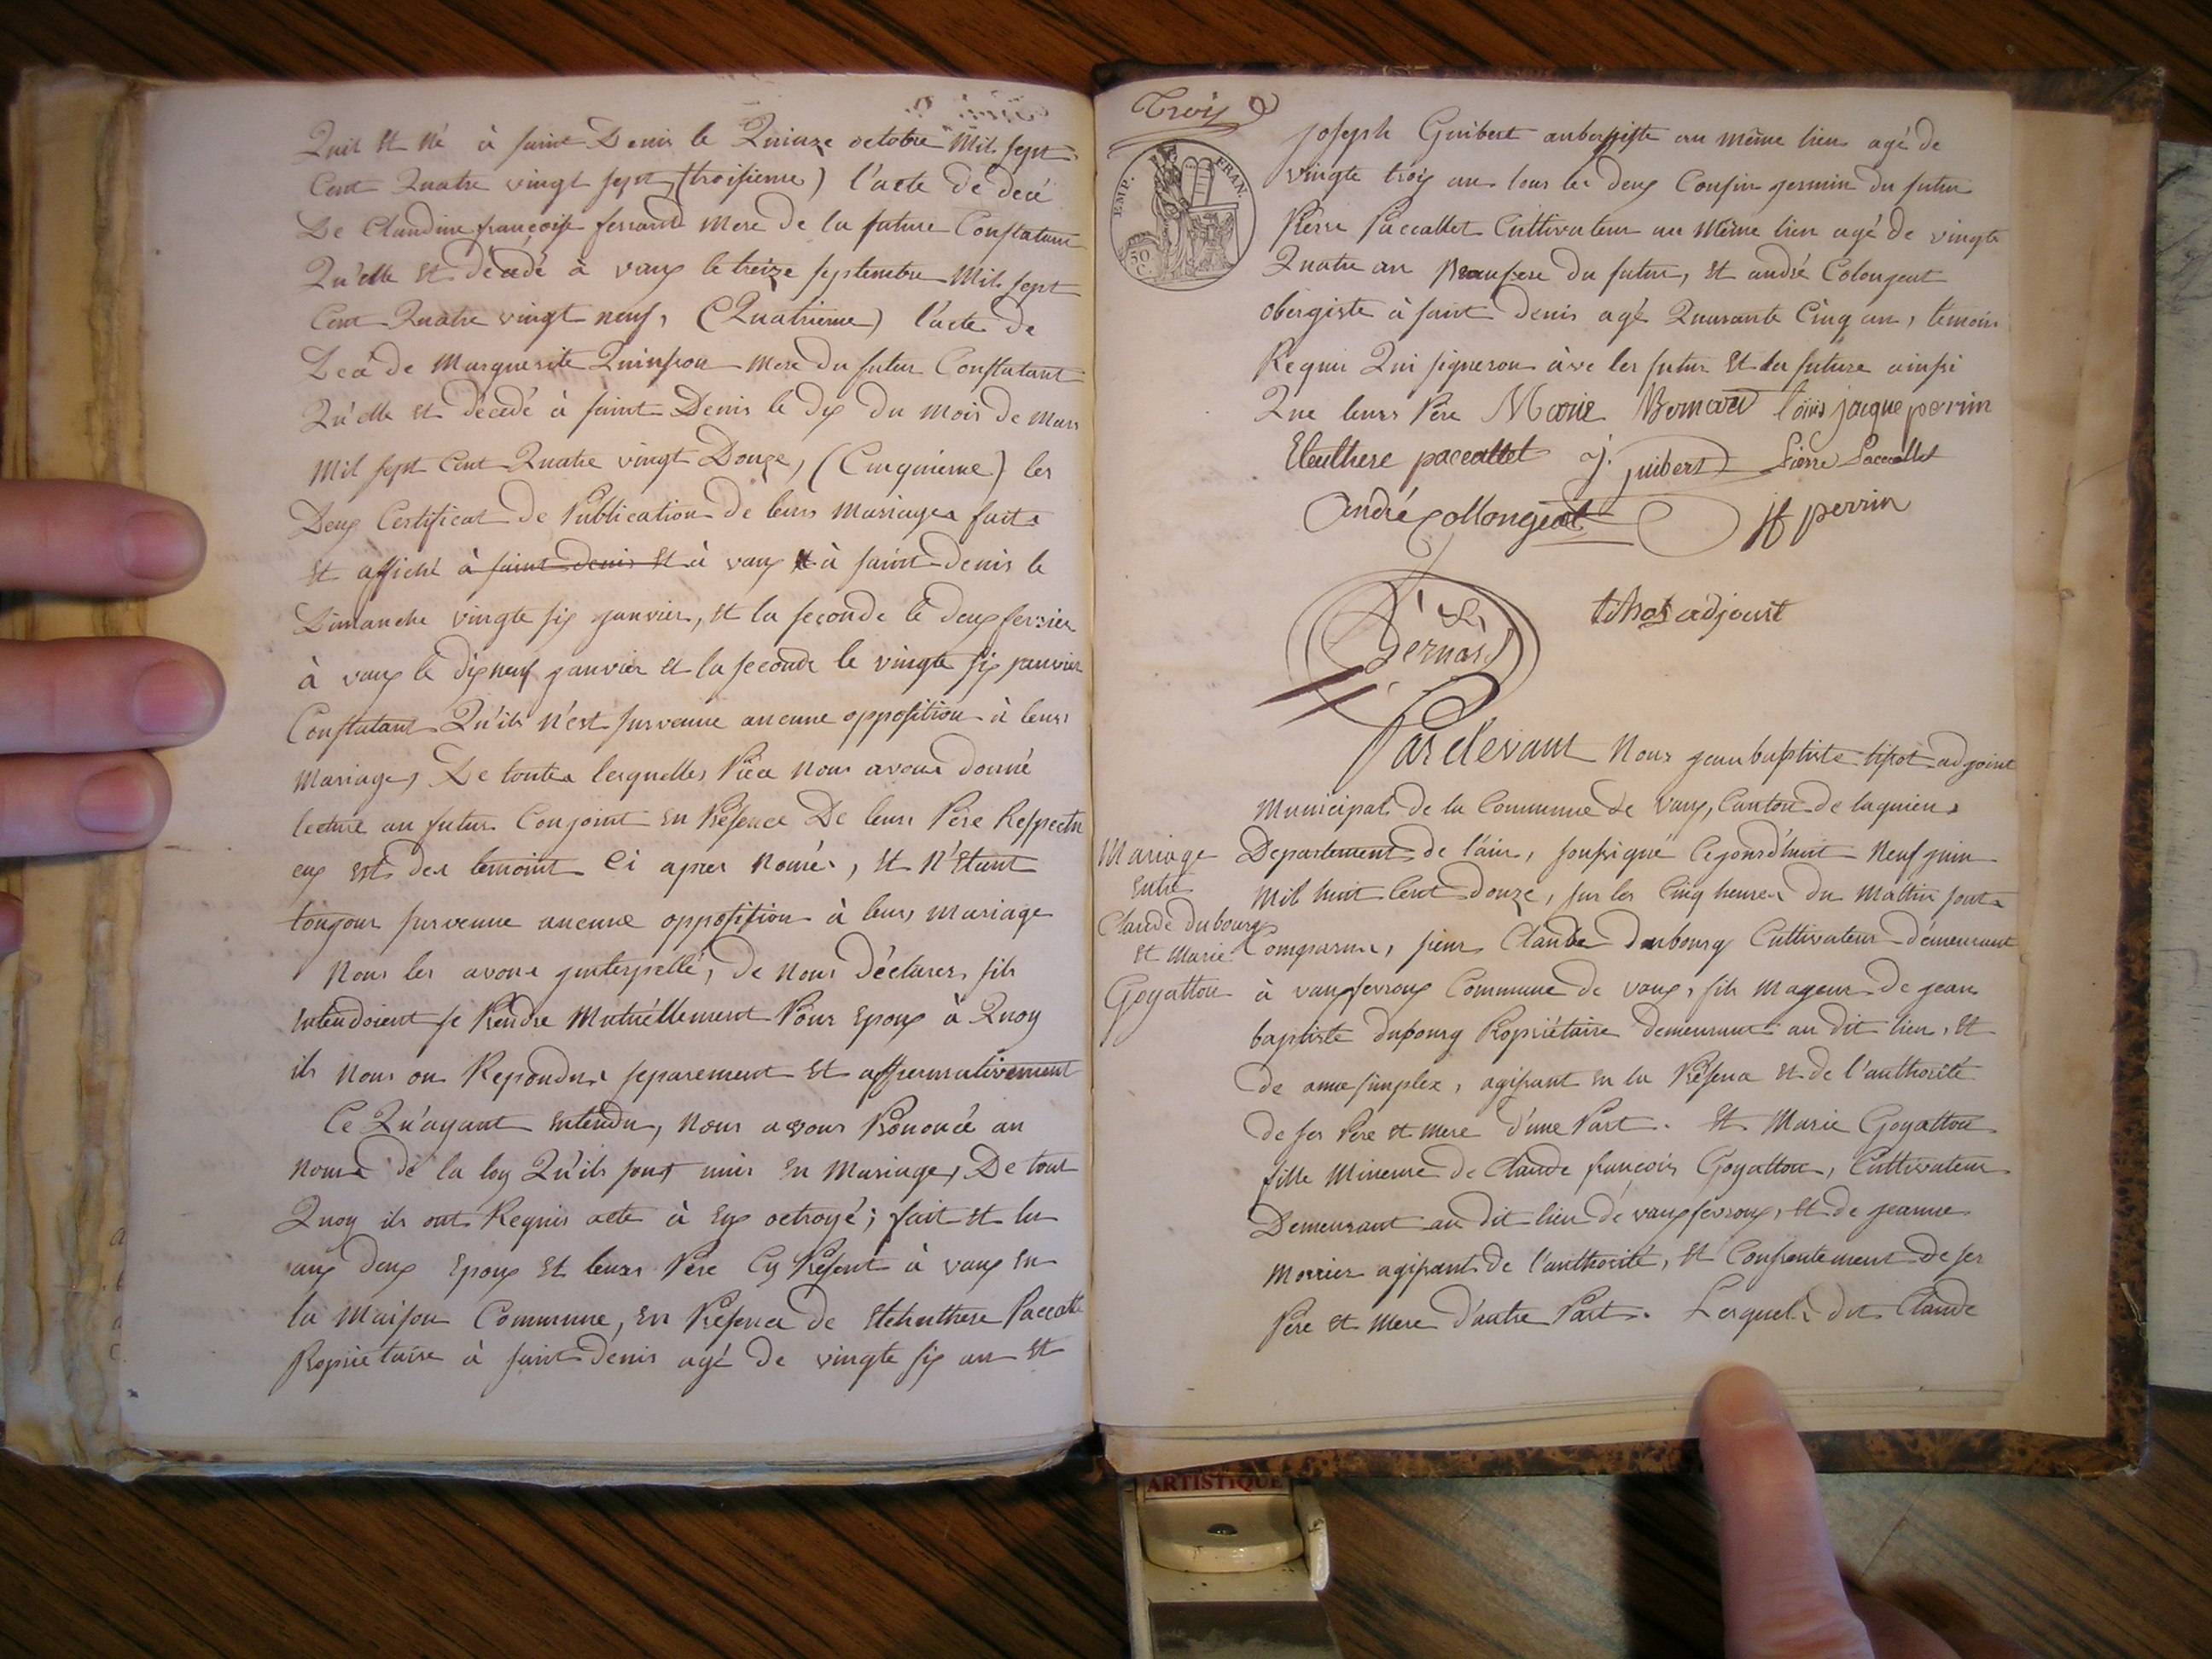 Quil Et Né à saint Denis le Quinze octobre Mil sept
Cent Quatre vingt sept, (troisieme) l'acte de decé
De Claudine françoise ferrand Mere de la future Constatant
Qu'elle Et décédé à vaux le treize septembre Mil sept
Cent Quatre vingt neuf, (Quatrieme) l'acte de
Decé de Marguerite Quinson Mere du futur Constatant
Qu'elle Et décedé à saint Denis le dix du mois de Mars
Mil sept Cent Quatre vingt Douze, (Cinquieme) les
Deux Certificat de Publication de leurs Mariages faits
Et affiché à saint denis Et à vaux Et à saint denis le
Dimanche vingte six janvier, Et la seconde le deux fevrier
à vaux le dix neuf janvier Et la seconde le vingte six janvier
Constatant Qu'ils N'est survenue aucune opposition à leurs
Mariage, De toutes lesquelles Piéce Nous avons donné
lecture au futur Conjoint En Présence De leurs Pere Respectiv
eux Est des temoint Ci apres Només, Et N'Etant
toujour survenue aucune opposition à leurs Mariage
Nous les avons jnterpellé, de Nous déclarer sils
Entendoient se Prendre Mutuéllement Pour Epoux à Quoy
ils Nous on Repondus separement Et affermativement
Ce Qu'ayant Entendu, Nous avons Prononcé au
Nome de la loy Qu'ils sont unis En Mariage, De tout
Quoy ils ont Requis acte à Eux octroyé; fait Et lu
aux deux Epoux Et leurs Pere Cy Présent à vaux En
la Maison Commune, En Présence de Paccalle
Propriétaire à saint denis agé de vingte six an Et
Trois
EMP. FRAN.
50 C.
joseph Guibert aubergiste au même lieu agé de
vingte trois an tous les deux Cousin germin du futur
Pierre Paccallet Cultivateur au Même lieu agé de vingte
Quatre an Beaufrere du futur, Et andré Colongeat
obergiste à saint denis agé Quarante Cinq an, temoin
Requis Qui signeron àve les futur Et la future ainsi
Que leurs Pére Marie Bernard louis jacque perrin
Eleuthere paccallet J. guibert Pierre Paccallet
André Collongeat jf perrin
Bernard
tihot adjoint
Pardevant Nous jean baptiste tihot adjoint
Municipal de la Commune de vaux, Canton de lagnieu,
Mariage
Entre
Claude dubourg
Et Marie
Goyatton
Departement de l'ain, soussigné Cejourd'huit Neuf juin
Mil huit Cent douze, sur les Cinq heures du Mattin sont
Comparus, sieur Claude dubourg Cultivateur démeurant
à vauxfevroux Commune de vaux, fils Mageur de jean
baptiste dubourg Propriétaire demeurant au dit lieu, Et
de anne simplex, agissant En la Présence Et de l'authorité
de ses Pere Et mere d'une Part. Et Marie Goyatton
fille Mineure de Claude françois Goyatton, Cultivateur
Demeurant au dit lieu de vauxfevroux, Et de jeanne
Morrier agissant de l'authorité, Et Consentement de ses
Pére Et mere d'autre Part. Lesquels dit Claude
ARTISTIQUE